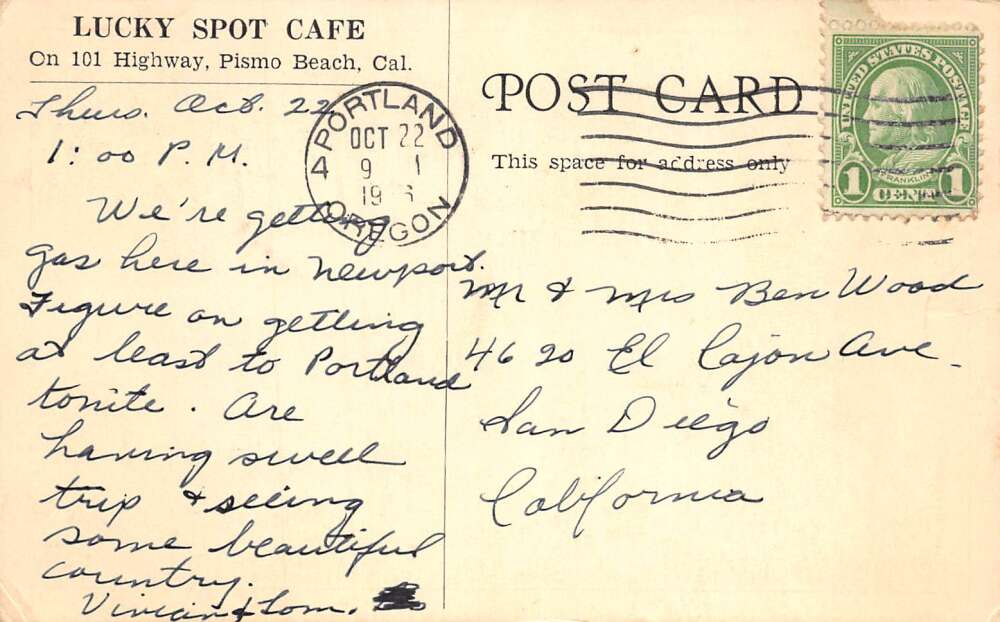 LUCKY SPOT CAFE
On 101 Highway, Pismo Beach, Cal.
Thurs. Oct. 22
1:00 P.M.
We're getting
gas here in Newport.
Figure on getting
at least to Portland
tonite. Are
having swell
trip & seeing
some beautiful
country.
Vivian & Tom.
PORTLAND
OCT 22
9
4
1
OREGON
POST CARD
This space for address only
UNITED STATES POSTAGE
FRANKLIN
1 CENT 1
Mr & Mrs Ben Wood
4620 El Cajon Ave.
San Diego
California